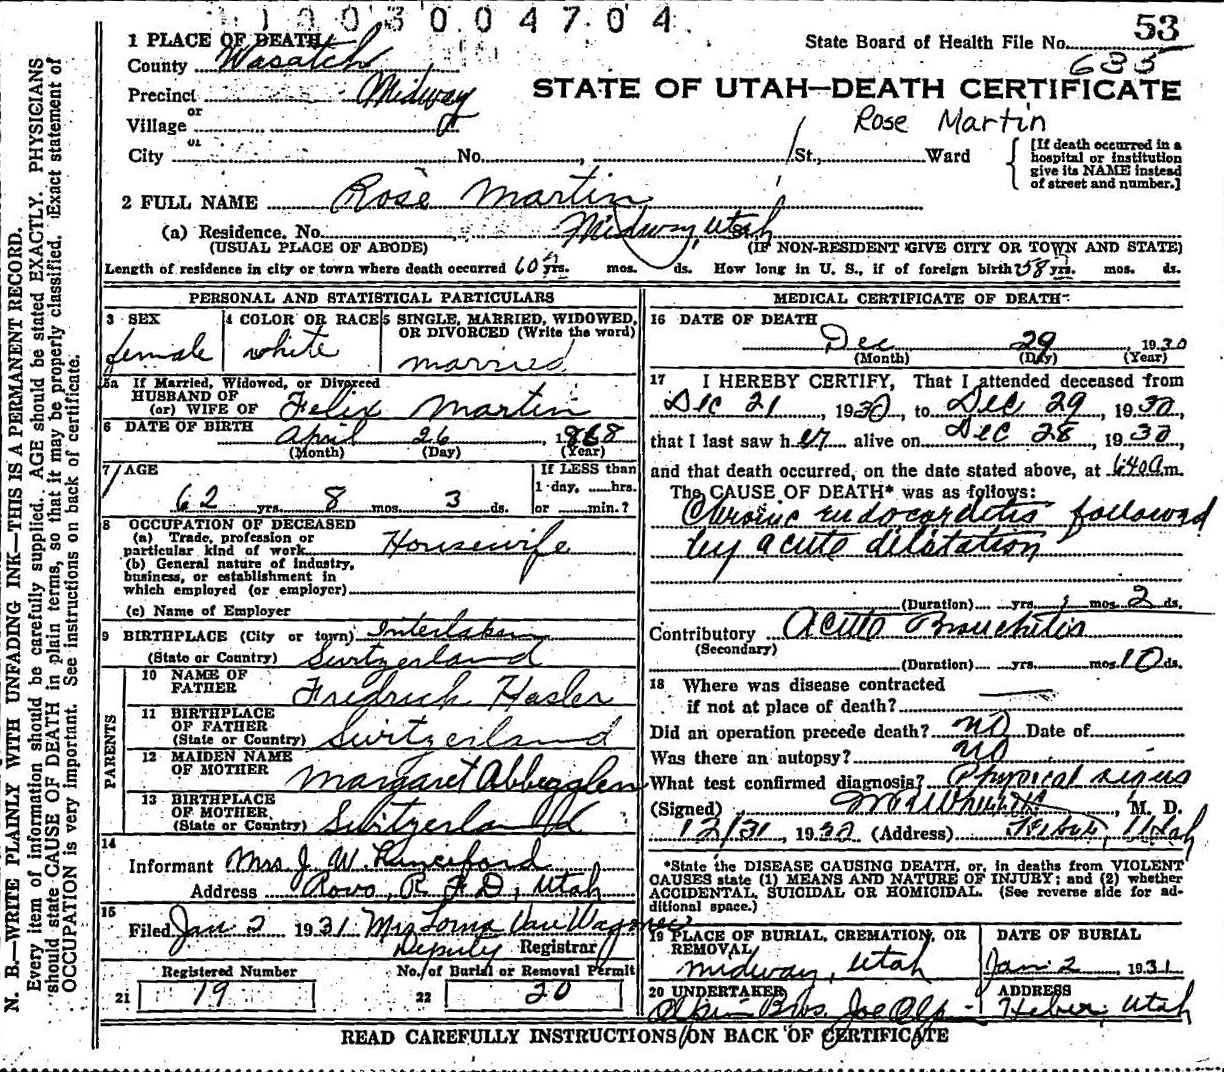 1003004704
53
State Board of Health File No. 635
1 PLACE OF DEATH
County Wasatch
STATE OF UTAH—DEATH CERTIFICATE
Precinct Midway
or
Village
Rose Martin
or
City No. , St., Ward
[If death occurred in a hospital or institution give its NAME instead of street and number.]
2 FULL NAME Rose Martin
(a) Residence. No. Midway, Utah
(USUAL PLACE OF ABODE) (IF NON-RESIDENT GIVE CITY OR TOWN AND STATE)
Length of residence in city or town where death occurred 60 yrs. mos. ds. How long in U. S., if of foreign birth 58 yrs. mos. ds.
PERSONAL AND STATISTICAL PARTICULARS
3 SEX
female
4 COLOR OR RACE
white
5 SINGLE, MARRIED, WIDOWED, OR DIVORCED (Write the word)
married
5a If Married, Widowed, or Divorced
HUSBAND OF
(or) WIFE OF Felix Martin
6 DATE OF BIRTH April 26, 1868
(Month) (Day) (Year)
7 AGE
62 yrs. 8 mos. 3 ds.
If LESS than
1 day, hrs.
or min.?
8 OCCUPATION OF DECEASED
(a) Trade, profession or
particular kind of work Housewife
(b) General nature of industry,
business, or establishment in
which employed (or employer)
(c) Name of Employer
9 BIRTHPLACE (City or town) Interlaken
(State or Country) Switzerland
PARENTS
10 NAME OF
FATHER Fredrich Hasler
11 BIRTHPLACE
OF FATHER
(State or Country) Switzerland
12 MAIDEN NAME
OF MOTHER Margaret Abbegglen
13 BIRTHPLACE
OF MOTHER
(State or Country) Switzerland
14
Informant Mrs J. W.
Address R F D, Utah
15
Filed Jan 2 1931 Mrs Lorna Van Wagoner
Deputy Registrar
Registered Number
21 19
No. of Burial or Removal Permit
22 20
MEDICAL CERTIFICATE OF DEATH
16 DATE OF DEATH
Dec 29, 1930
(Month) (Day) (Year)
17 I HEREBY CERTIFY, That I attended deceased from
Dec 21, 1930, to Dec 29, 1930,
that I last saw her alive on Dec 28, 1930,
and that death occurred, on the date stated above, at 640 a m.
The CAUSE OF DEATH* was as follows:
Chronic endocorditis followed
by acute dilatation
(Duration) yrs. mos. 2 ds.
Contributory Acute Bronchitis
(Secondary)
(Duration) yrs. mos. 10 ds.
18 Where was disease contracted
if not at place of death?
Did an operation precede death? no Date of
Was there an autopsy? no
What test confirmed diagnosis? Physical signs
(Signed) , M. D.
12/31 1930 (Address) Heber, Utah
*State the DISEASE CAUSING DEATH, or, in deaths from VIOLENT
CAUSES state (1) MEANS AND NATURE OF INJURY; and (2) whether
ACCIDENTAL, SUICIDAL OR HOMICIDAL. (See reverse side for ad-
ditional space.)
19 PLACE OF BURIAL, CREMATION, OR
REMOVAL
Midway, Utah
DATE OF BURIAL
Jan 2, 1931
20 UNDERTAKER
Bros. Joe
ADDRESS
Heber, Utah
READ CAREFULLY INSTRUCTIONS ON BACK OF CERTIFICATE
N. B.—WRITE PLAINLY WITH UNFADING INK—THIS IS A PERMANENT RECORD.
Every item of information should be carefully supplied. AGE should be stated EXACTLY. PHYSICIANS
should state CAUSE OF DEATH in plain terms, so that it may be properly classified. Exact statement of
OCCUPATION is very important. See instructions on back of certificate.